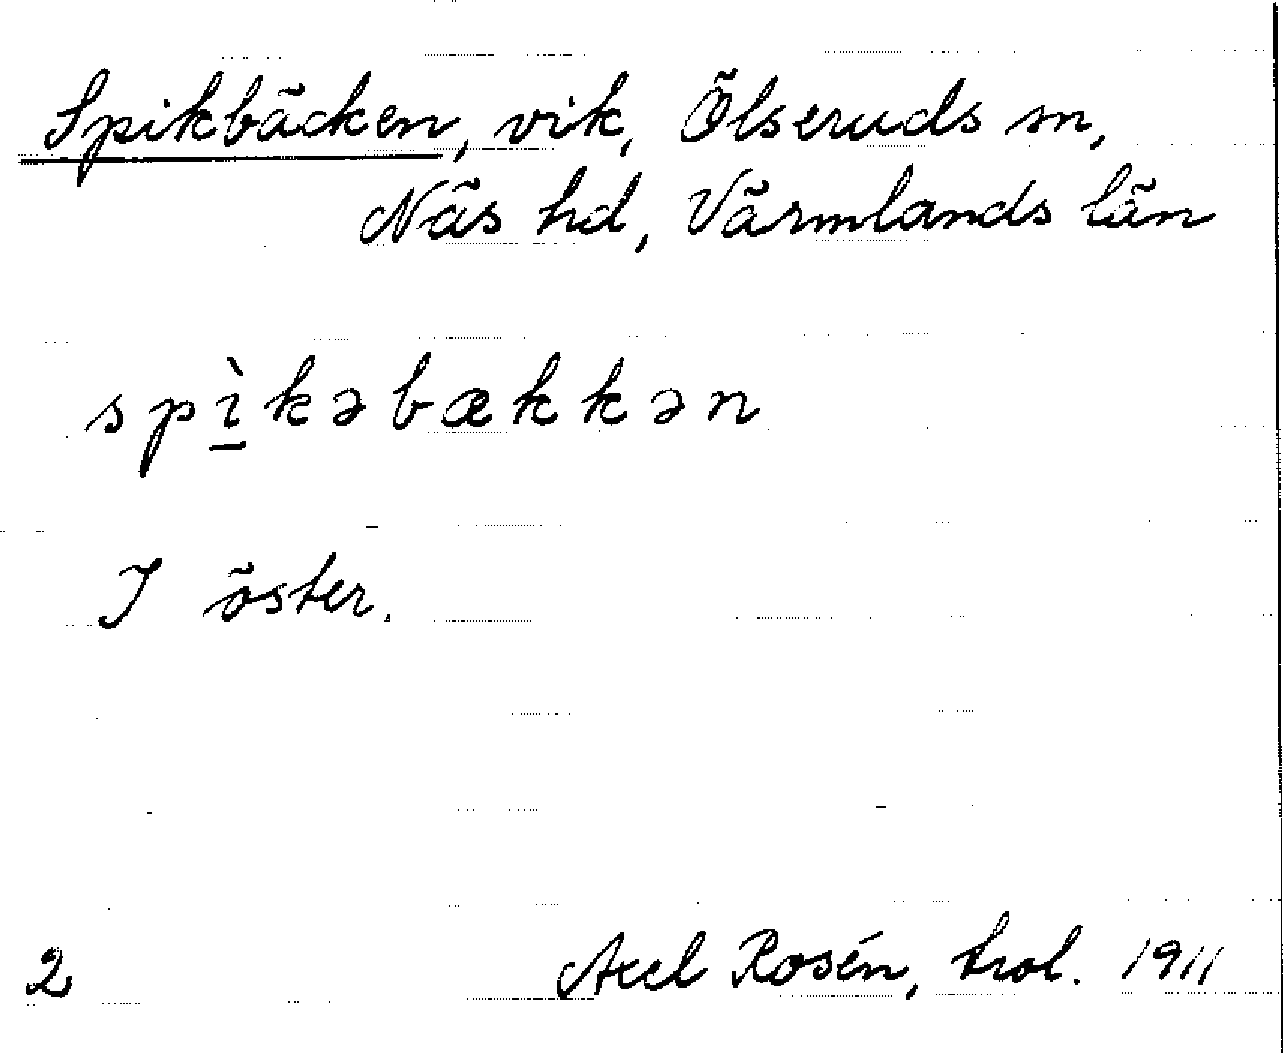 Spikbäcken, vik, Ölseruds sn,
Näs hd, Värmlands län
spì̠kəbækkən
I öster.
2 Axel Rosén, trol. 1911